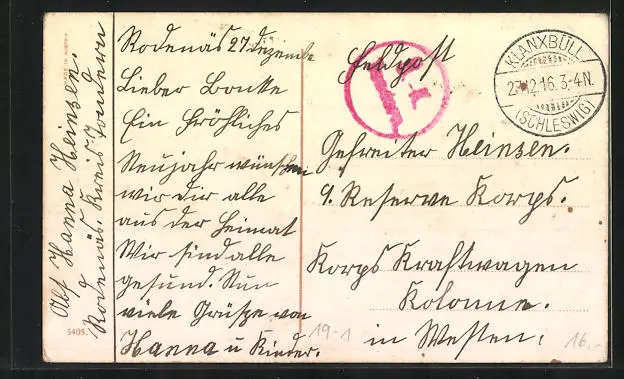 Abs. Hanna Heinsen.
Rodenäs. Kreis Tondern
Rodenäs 27 Dezember
Lieber Bonke
Ein Fröhliches
Neujahr wünschen
wir dir alle
aus der Heimat
Wir sind alle
gesund. Nun
viele Grüße von
Hanna u Kinder.
5405.
Feldpost
KLANXBÜLL
27.12.16.3-4N.
(SCHLESWIG)
Gefreiter Heinsen.
9. Reserve Korps.
Korps Kraftwagen
Kolonne.
in Westen.
19-1
16.-